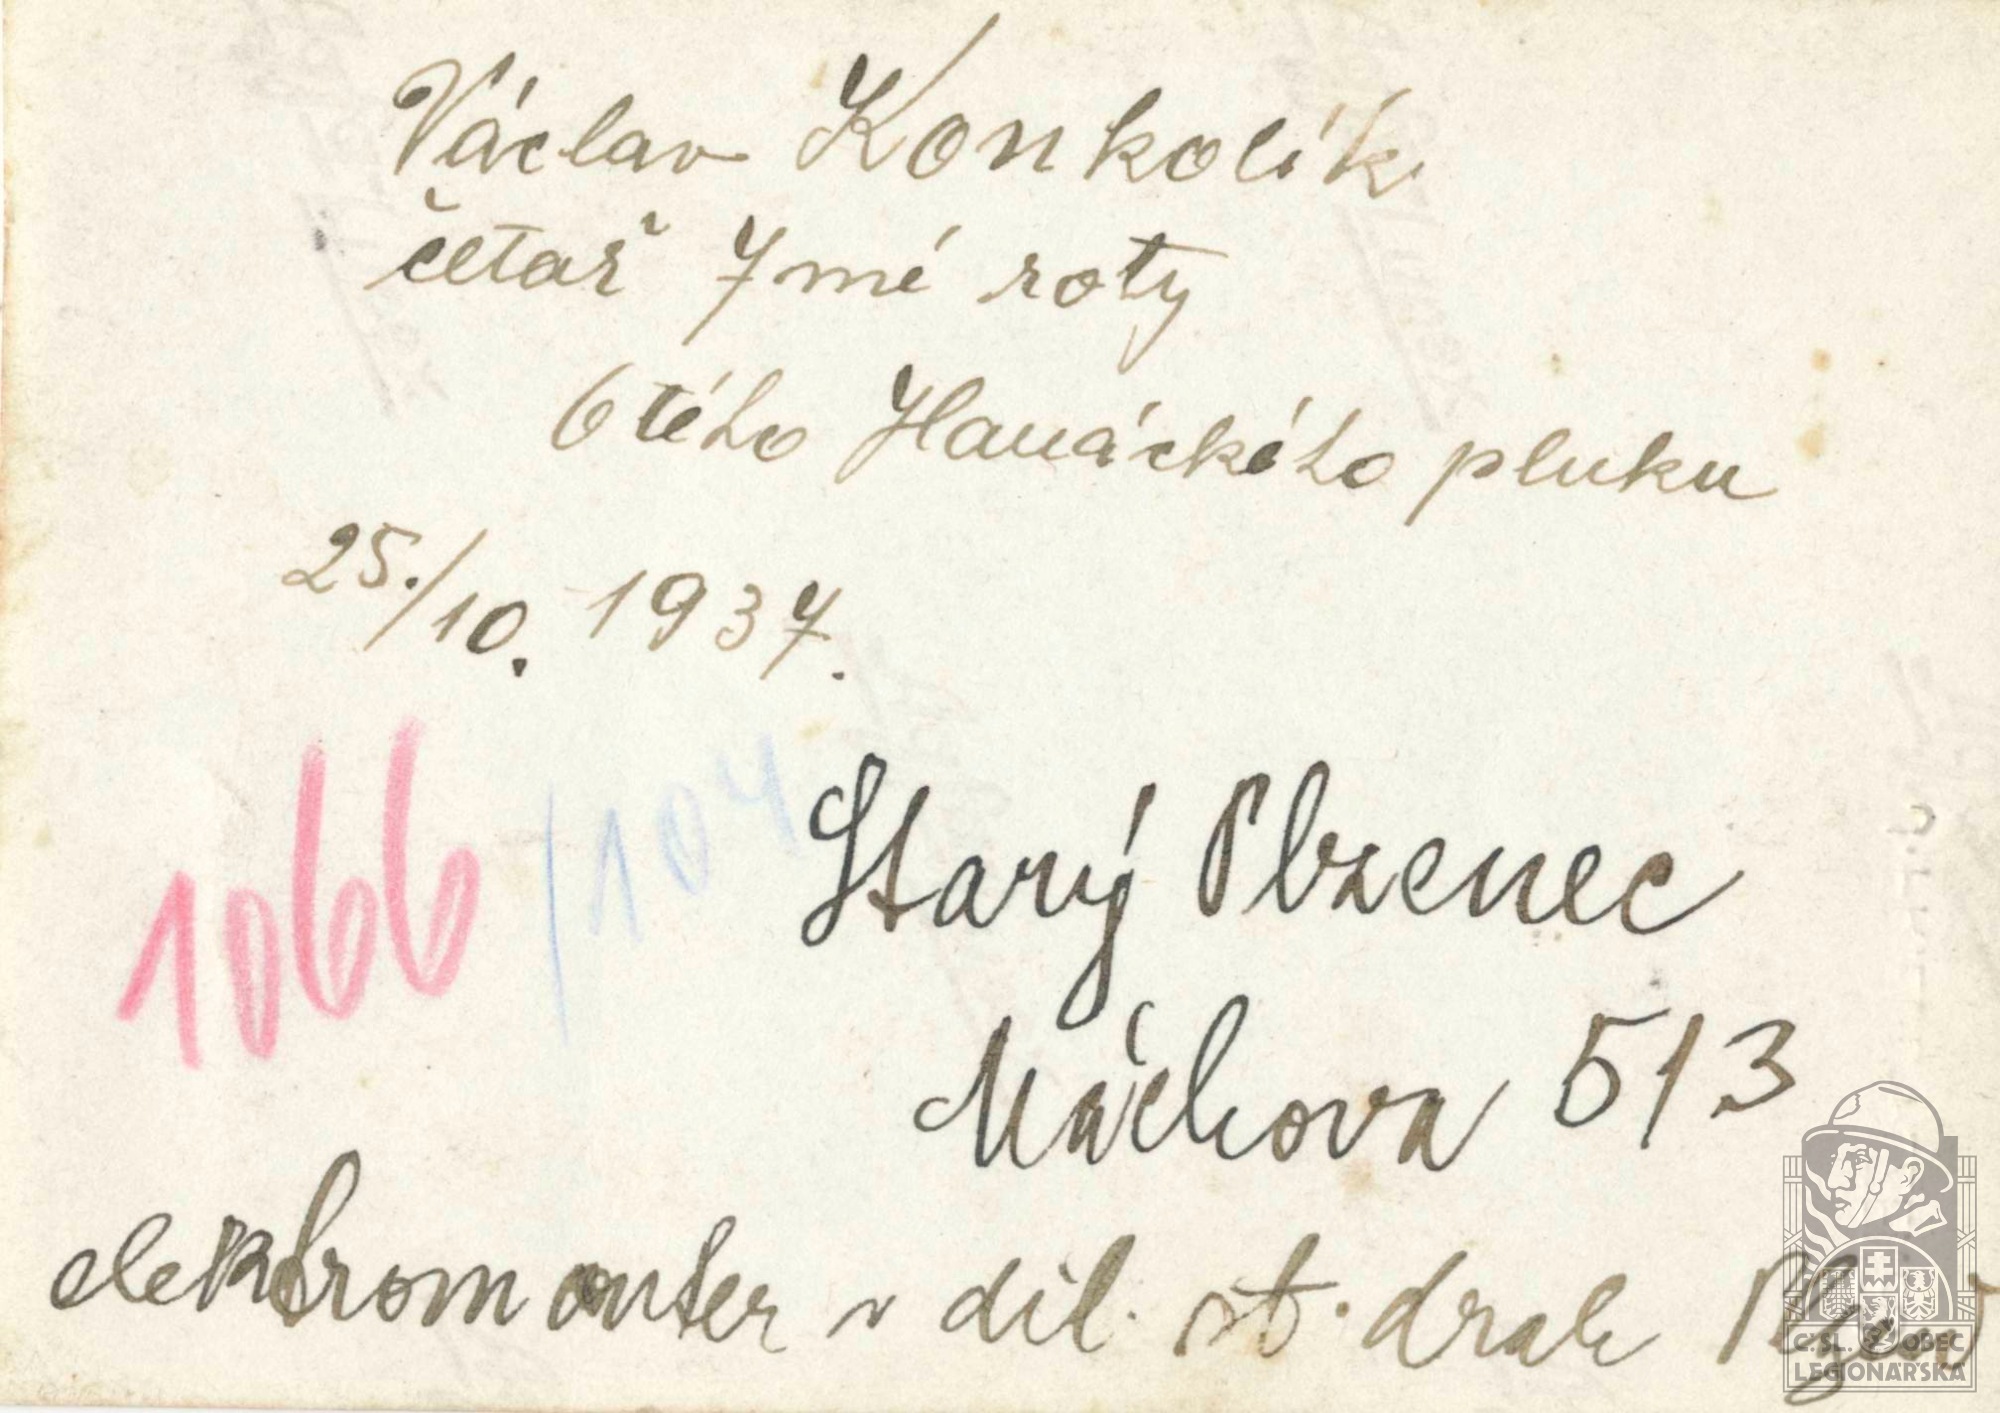 Václav Konkolík
četař 7mé roty
6tého Hanáckého pluku
25./10. 1937.
1066 /104
Starý Plzenec
Máchova 513
elektromonter v díl. st. drah Plzeň
Č. SL. OBEC
LEGIONÁŘSKÁ